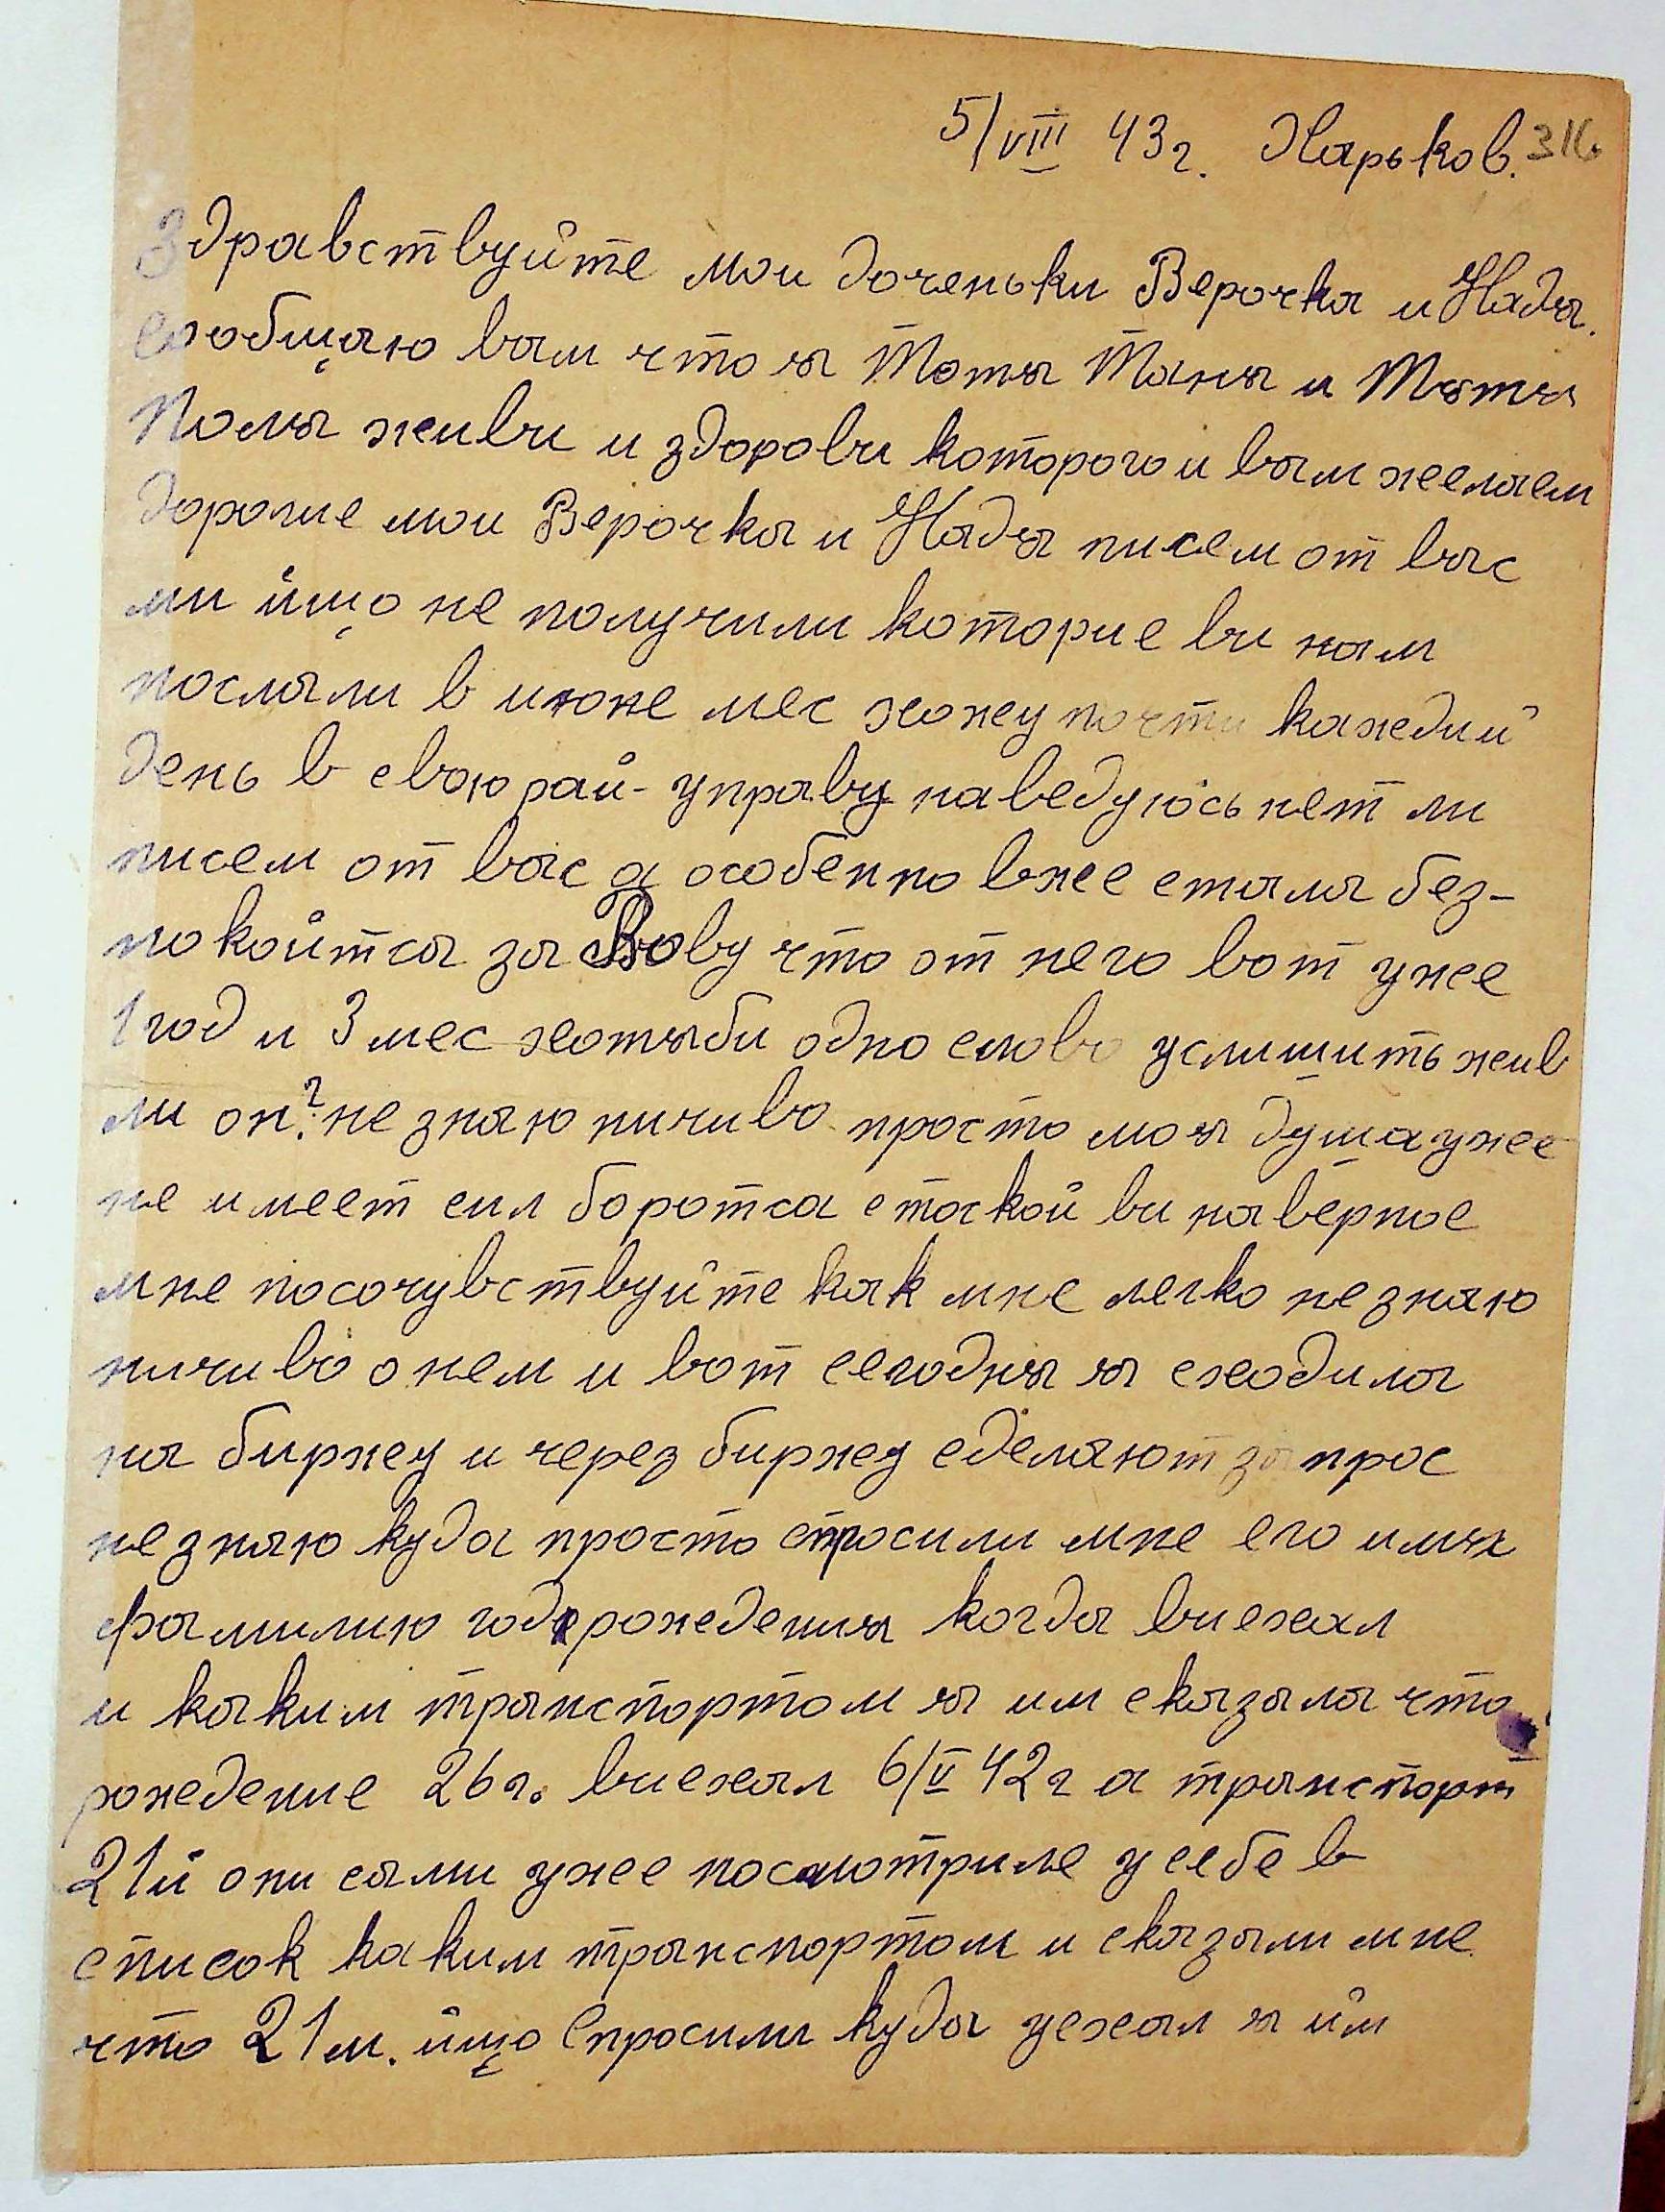 5/VIII 43г. Харьков. 316
Здравствуйте мои доченьки Верочка и Надя.
сообщаю вам что я Тотя Таня и Тотя
Поля живи и здорови которого и вам желаем
дорогие мои Верочка и Надя писем от вас
ми йщо не получили которие ви нам
послали в июне мес хожу почти каждий
день в свою рай-управу наведуюсь нет ли
писем от вас а особенно вже стала без-
покойтса за Вову что от него вот уже
1 год и 3 мес хотяби одно слово услишить жив
ли он? не знаю ничиво просто моя душа уже
не имеет сил боротса с тоской ви наверное
мне посочувствуйте как мне легко не знаю
ничиво о нем и вот сегодня я сходила
на биржу и через биржу сделают запрос
не знаю куда просто спросили мне его имя
фамилию год рождения когда виехал
и каким транспортом я им сказала что
рождение 26 г. виехал 6/V 42 г а транспорт
21й они сами уже посмотриле у себе в
список каким транспортом и сказали мне
что 21м. йщо спросили куда уехал я йм